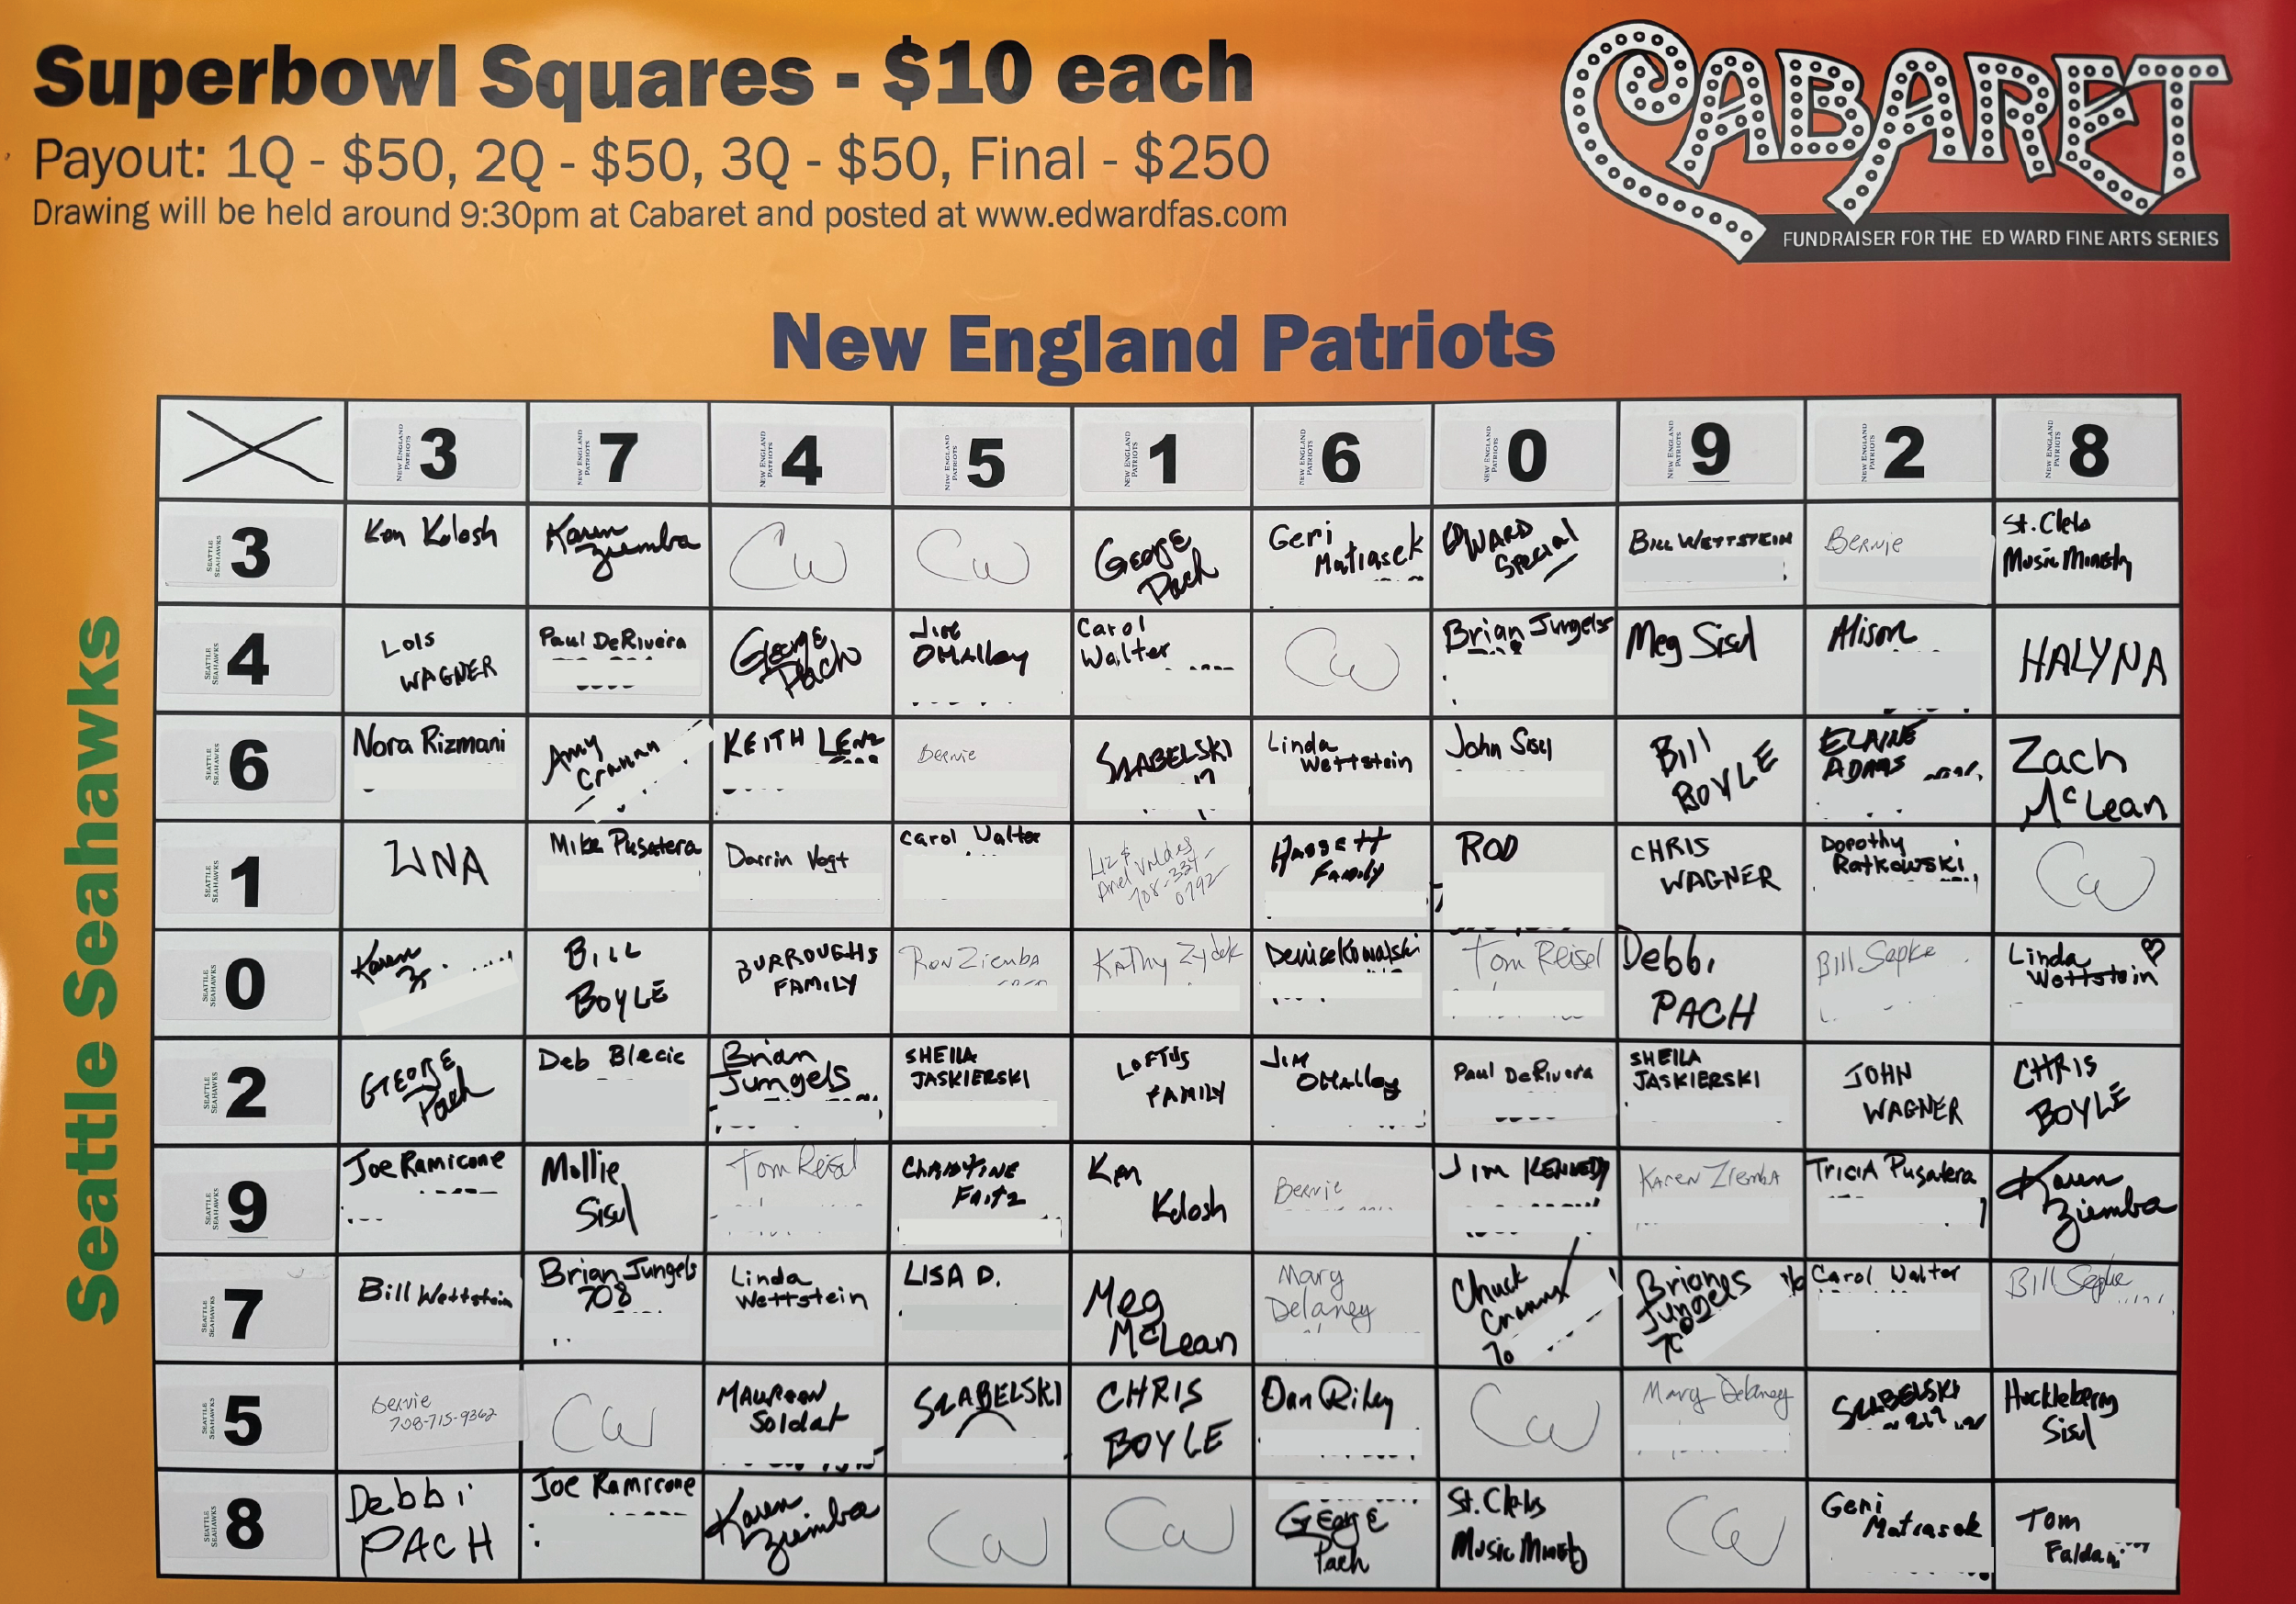 Superbowl Squares - $10 each
Payout: 1Q - $50, 2Q - $50, 3Q - $50, Final - $250
Drawing will be held around 9:30pm at Cabaret and posted at www.edwardfas.com
CABARET
FUNDRAISER FOR THE ED WARD FINE ARTS SERIES
New England Patriots
Seattle Seahawks
NEW ENGLAND PATRIOTS 3 NEW ENGLAND PATRIOTS 7 NEW ENGLAND PATRIOTS 4 NEW ENGLAND PATRIOTS 5 NEW ENGLAND PATRIOTS 1 NEW ENGLAND PATRIOTS 6 NEW ENGLAND PATRIOTS 0 NEW ENGLAND PATRIOTS 9 NEW ENGLAND PATRIOTS 2 NEW ENGLAND PATRIOTS 8
SEATTLE SEAHAWKS 3 Ken Kolosh Karen Ziemba CW CW George Pach Geri Matiasek EDWARD Special BILL WETTSTEIN Bernie St. Clets Music Ministry
SEATTLE SEAHAWKS 4 LOIS WAGNER Paul DeRivera George Pach Jim OMalley Carol Walter CW Brian Jungels Meg Sisul Alison HALYNA
SEATTLE SEAHAWKS 6 Nora Rizmani Amy Crannn KEITH LENZ Bernie SZABELSKI Linda Wettstein John Sisul Bill BOYLE ELAINE ADAMS Zach McLean
SEATTLE SEAHAWKS 1 Mike Pusatera Darrin Vogt Carol Walter Liz & Ariel Valdes 708-334-0792 Family ROD CHRIS WAGNER Dorothy Ratkowski CW
SEATTLE SEAHAWKS 0 Karen Z BILL BOYLE BURROUGHS FAMILY Ron Ziemba Kathy Zydek Denise Kowalski Tom Reisel Debbi PACH Bill Sepke Linda Wettstein
SEATTLE SEAHAWKS 2 GEORGE Pach Deb Blecic Brian Jungels SHEILA JASKIERSKI LOFTUS FAMILY Jim OMalley Paul DeRivera SHEILA JASKIERSKI JOHN WAGNER CHRIS BOYLE
SEATTLE SEAHAWKS 9 Joe Ramicone Mollie Sisul Tom Reisel CHRISTINE Fritz Ken Kolosh Bernie Jim KENNEDY Karen Ziemba TRICIA Pusatera Karen Ziemba
SEATTLE SEAHAWKS 7 Bill Wettstein Brian Jungels 708 Linda Wettstein LISA D. Meg McLean Mary Delaney Chuck 70 Jungels Carol Walter Bill Sepke
SEATTLE SEAHAWKS 5 Bernie 708-715-9362 CW MAUREEN Soldat SZABELSKI CHRIS BOYLE Dan Riley CW Mary Delaney SZABELSKI Huckleberry Sisul
SEATTLE SEAHAWKS 8 Debbi PACH Joe Ramicone Karen Ziemba CW CW George Pach St. Clets Music Ministry CW Geri Matiasek Tom